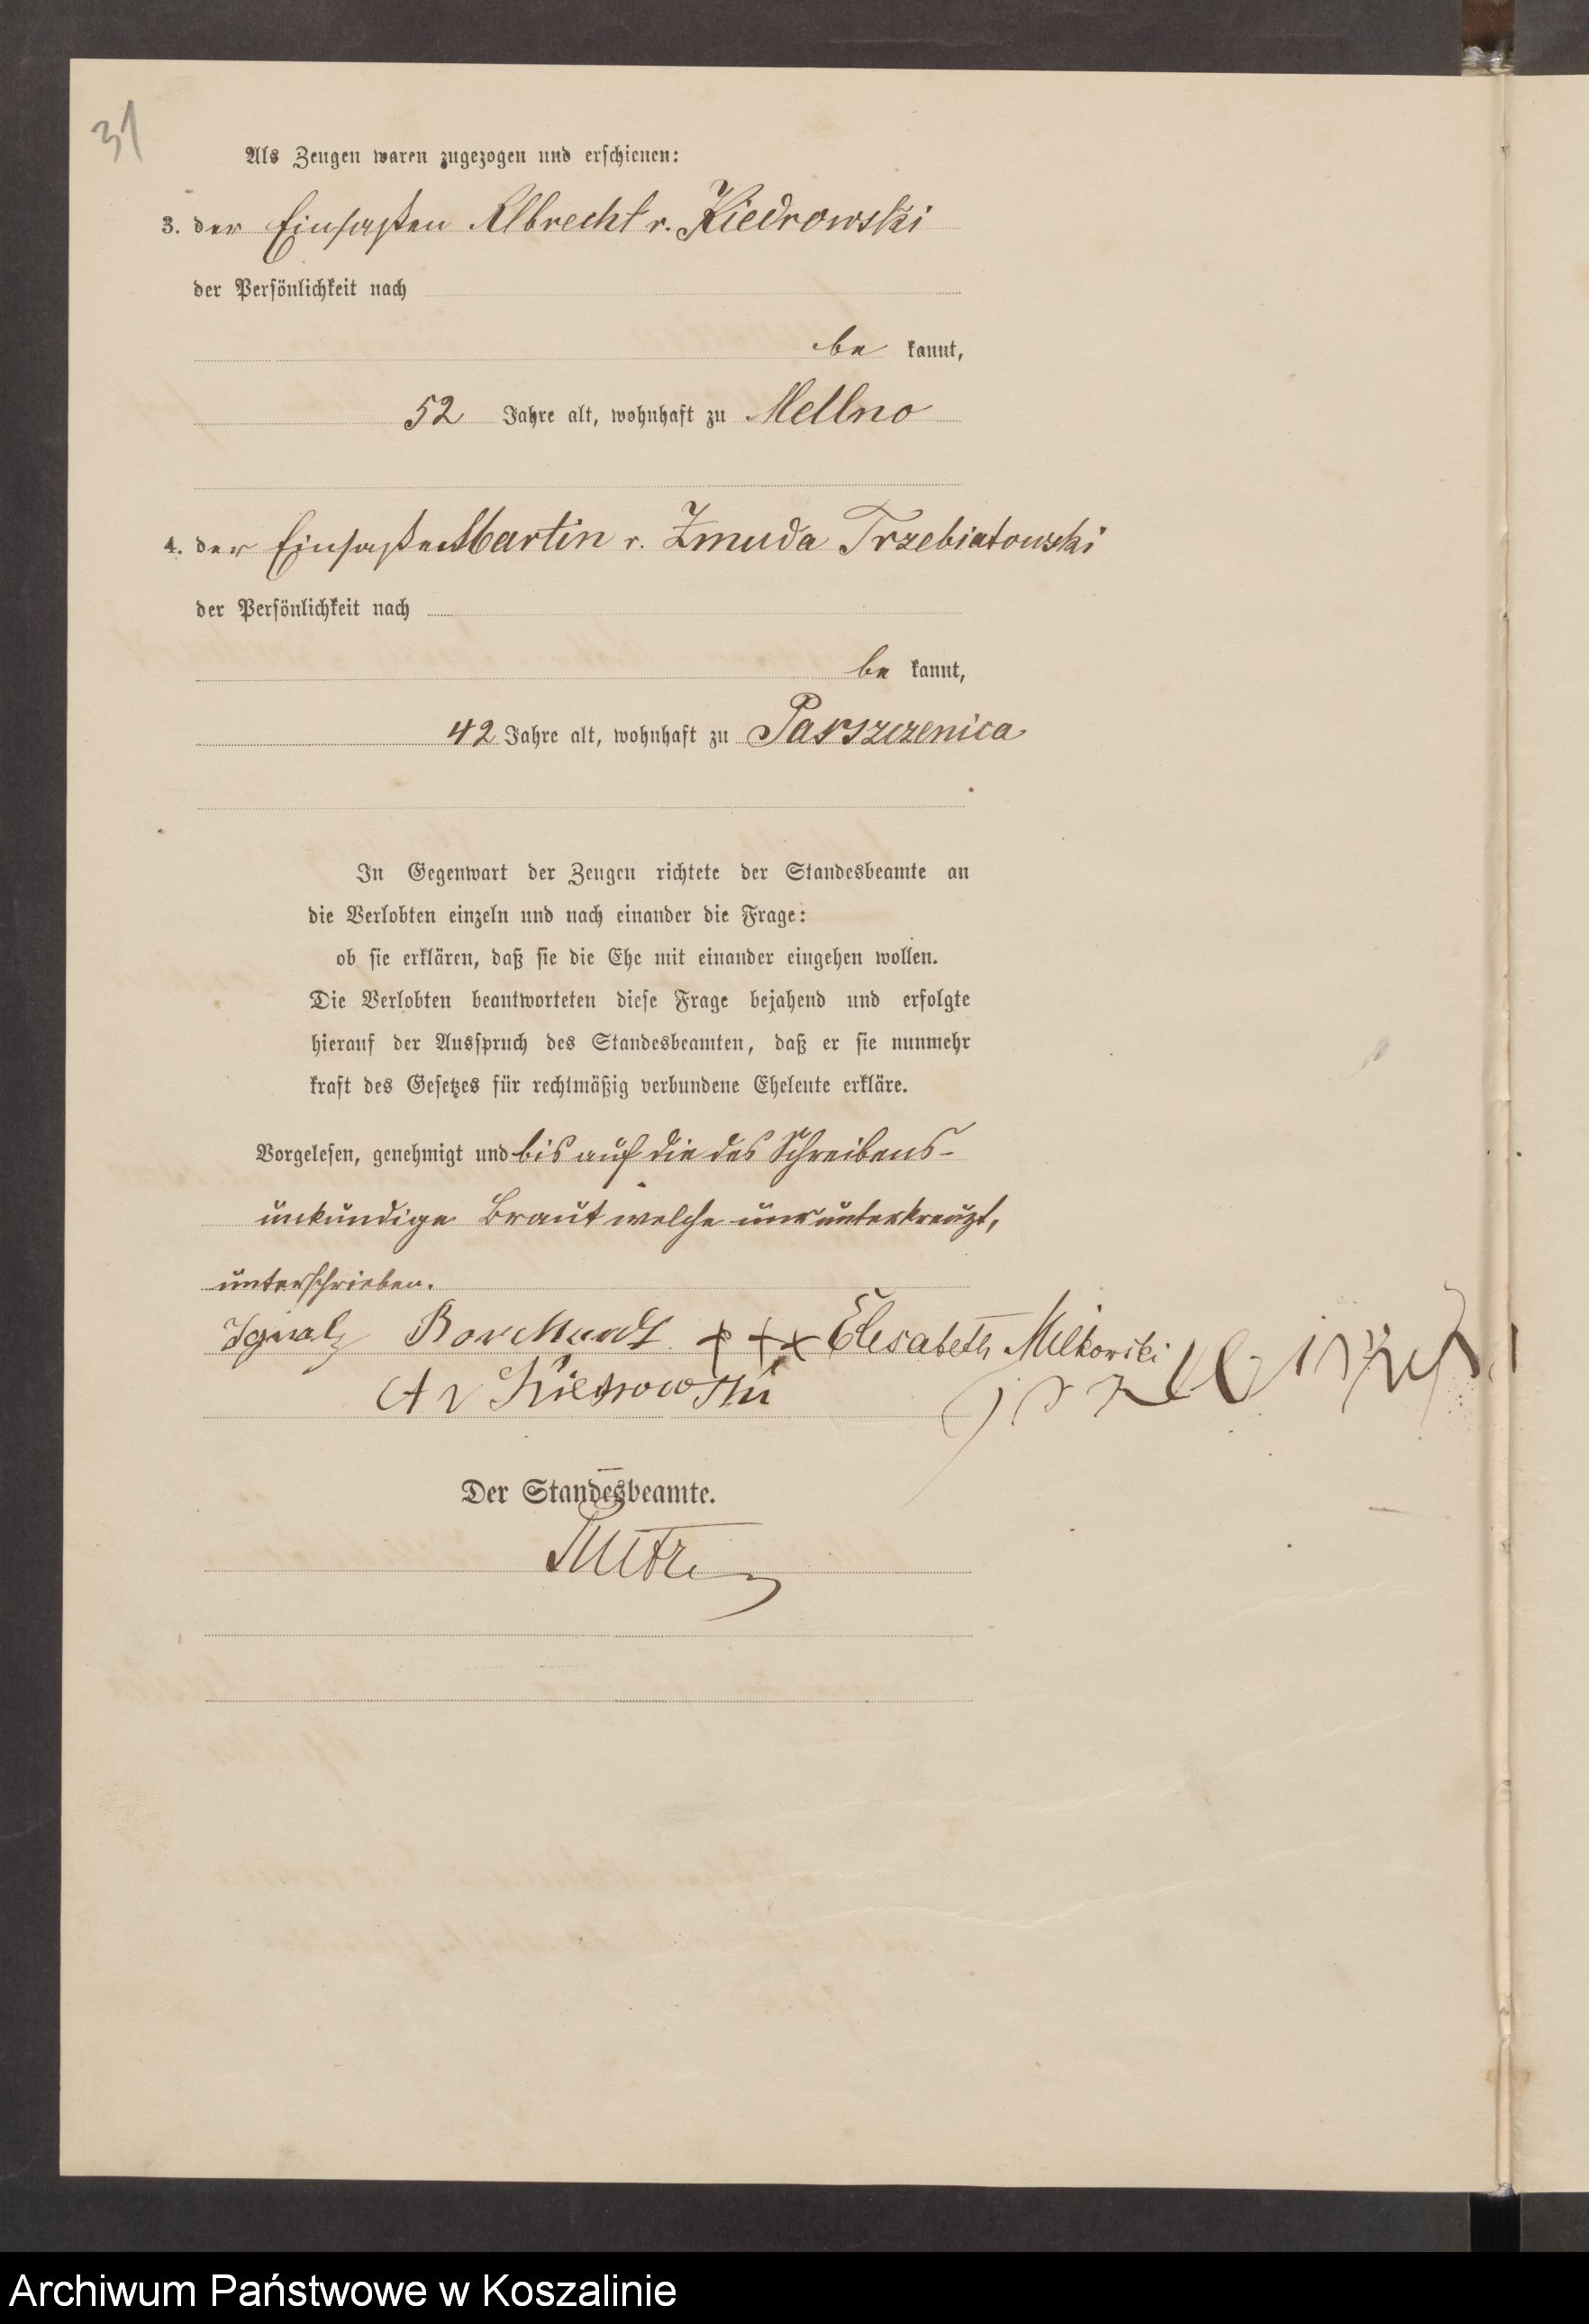 31
Als Zeugen waren zugezogen und erschienen:
3. der Einsaßen Albrecht v. Kiedrowski
der Persönlichkeit nach
be kannt,
52 Jahre alt, wohnhaft zu Mellno
4. der Einsaßen Martin v. Zmuda Trzebiatowski
der Persönlichkeit nach
be kannt,
42 Jahre alt, wohnhaft zu Parszczenica
In Gegenwart der Zeugen richtete der Standesbeamte an
die Verlobten einzeln und nach einander die Frage:
ob sie erklären, daß sie die Ehe mit einander eingehen wollen.
Die Verlobten beantworteten diese Frage bejahend und erfolgte
hierauf der Ausspruch des Standesbeamten, daß er sie nunmehr
kraft des Gesetzes für rechtmäßig verbundene Eheleute erkläre.
Vorgelesen, genehmigt und bis auf die des Schreibens-
unkundige Braut welche nur unterkreuzt,
unterschrieben.
Ignatz +++ Elisabeth Melkowski
A v Kiedrowski
Der Standesbeamte.
Archiwum Państwowe w Koszalinie